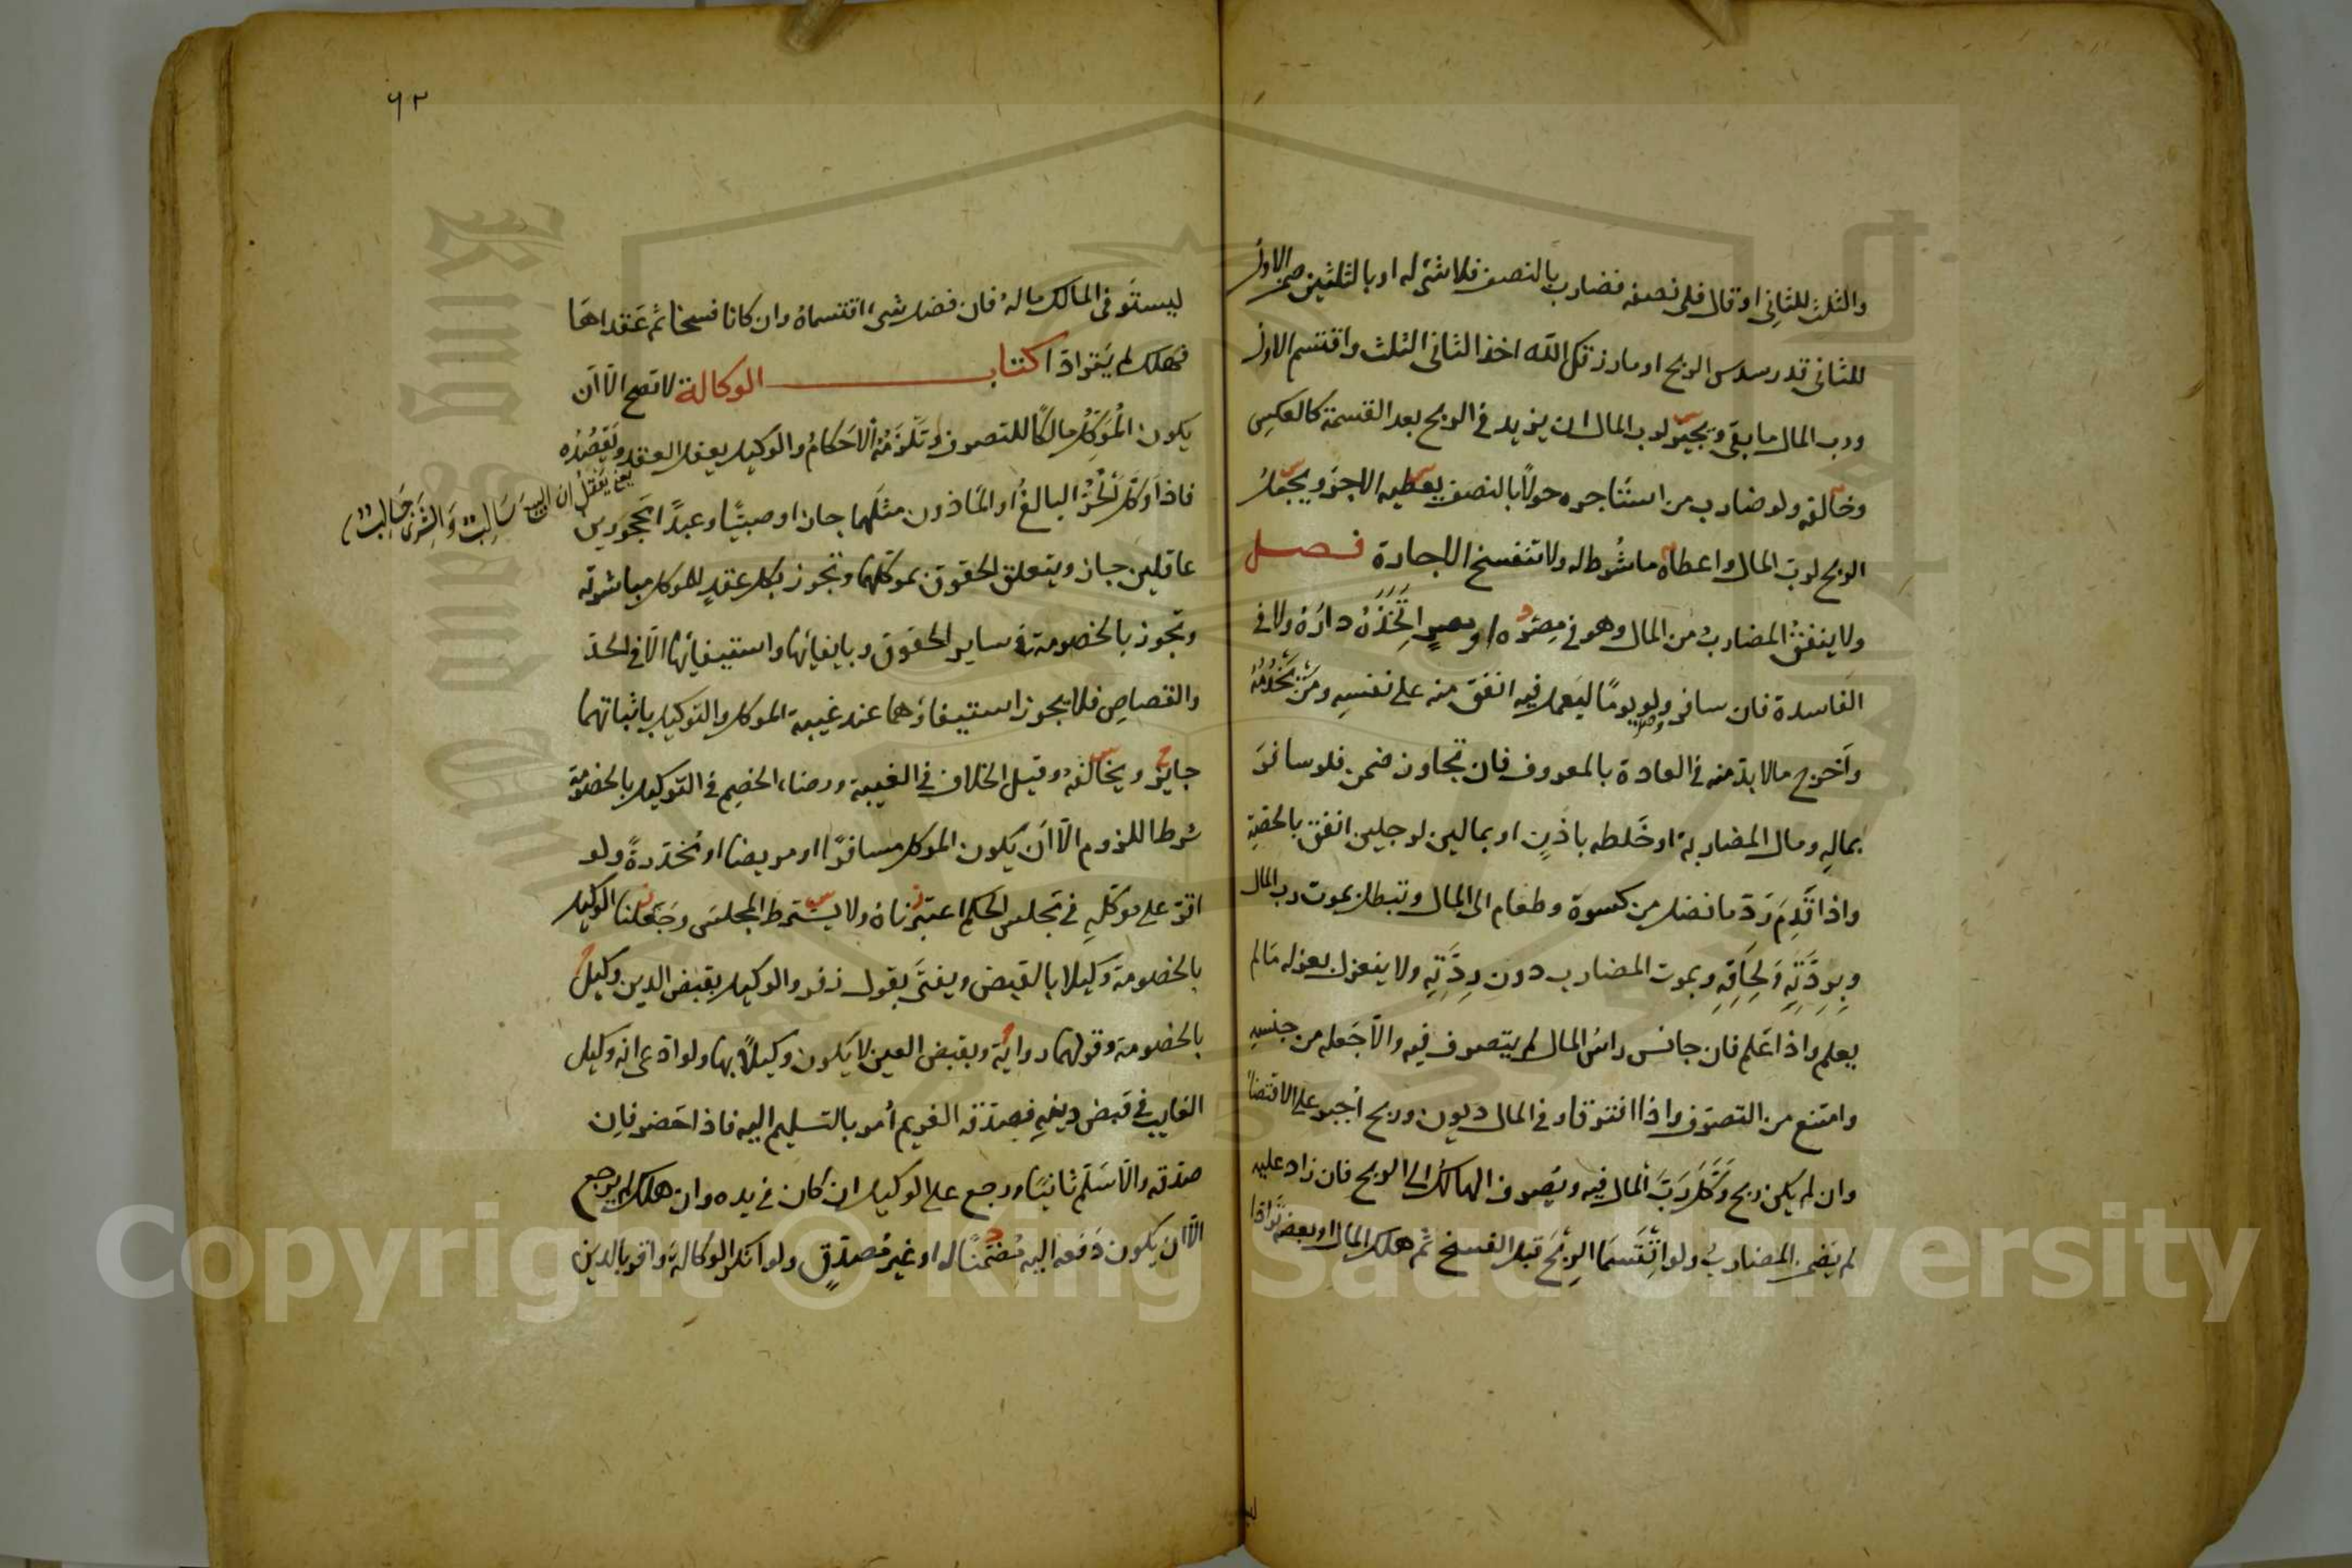 والثلث للثاني او قال فلي نصفه فضارب بالنصف فلا شئ له او بالثلثين ضمن الاول
للثاني قدر سدس الربح او ما رزقك الله اخذ الثاني الثلث واقتسم الاول
ورب المال ما بقي ويجيز لرب المال ان يزيد في الربح بعد القسمة كالعكس
وخالفه ولو ضارب من استاجره حولا بالنصف يعطيه الاجر ويجعل
الربح لرب المال واعطاه ما شرط له ولا تنفسخ الاجارة فصل
ولا ينفق المضارب من المال وهو في مصره او مصر اتخذه داره ولا في
الفاسدة فان سافر ولو يوما ليعمل فيه انفق منه على نفسه ومن يخدمه
واخرج مالا بد منه في العادة بالمعروف فان تجاوز ضمن فلو سافر
بماله ومال المضاربة او خلطه باذن او بمالين لرجلين انفق بالحصة
واذا قدم رد ما فضل من كسوة وطعام الى المال وتبطل بموت رب المال
وبردته ولحاقه وبموت المضارب دون ردته ولا ينعزل بعزله مالم
يعلم واذا علم فان جانس راس المال لم يتصرف فيه والا جعله من جنسه
وامتنع من التصرف واذا افترقا وفي المال ديون وربح اجبر على الاقتضا
وان لم يكن ربح وكل رب المال فيه ويصرف الهالك الى الربح فان زاد عليه
لم يضمن المضارب ولو اقتسما الربح قبل الفسخ ثم هلك المال او بعضه ترادا
٦٢
ليستوفي المالك ماله فان فضل شئ اقتسماه وان كانا فسخا ثم عقداها
فهلك لم يترادا كتاب الوكالة لا تصح الا ان
يكون الموكل مالكا للتصرف وتلزمه الاحكام والوكيل يعقل العقد ويقصده
يعني يعقل ان البيع سالب والشرى جالب
فاذا وكل الحر البالغ او الماذون مثلهما جاز او صبيا وعبدا محجورين
عاقلين جاز ويتعلق الحقوق بموكلهما وتجوز بكل عقد للموكل مباشرته
وتجوز بالخصومة في ساير الحقوق وبايفائها واستيفائها الا في الحد
والقصاص فلا يجوز استيفاؤهما عند غيبة الموكل والتوكيل باثباتهما
جايز ويخالفه وقيل الخلاف في الغيبة ورضاء الخصم في التوكيل بالخصومة
شرط اللزوم الا ان يكون الموكل مسافرا او مريضا او مخدرة ولو
اقر على موكله في مجلس الحكم اعتبرناه ولا يشترط المجلس وجعلنا الوكيل
بالخصومة وكيلا بالقبض ويفتى بقول زفر والوكيل بقبض الدين وكيل
بالخصومة وقولهما رواية وبقبض العين لا يكون وكيلا بها ولو ادعى انه وكيل
الغايب في قبض دينه فصدقه الغريم امر بالتسليم اليه فاذا حضر فان
صدقه والا سلم ثانيا ورجع على الوكيل ان كان في يده وان هلك لم يرجع
الا ان يكون دفعه اليه مضمنا له او غير مصدق ولو انكر الوكالة واقر بالدين
Copyright © King Saud University